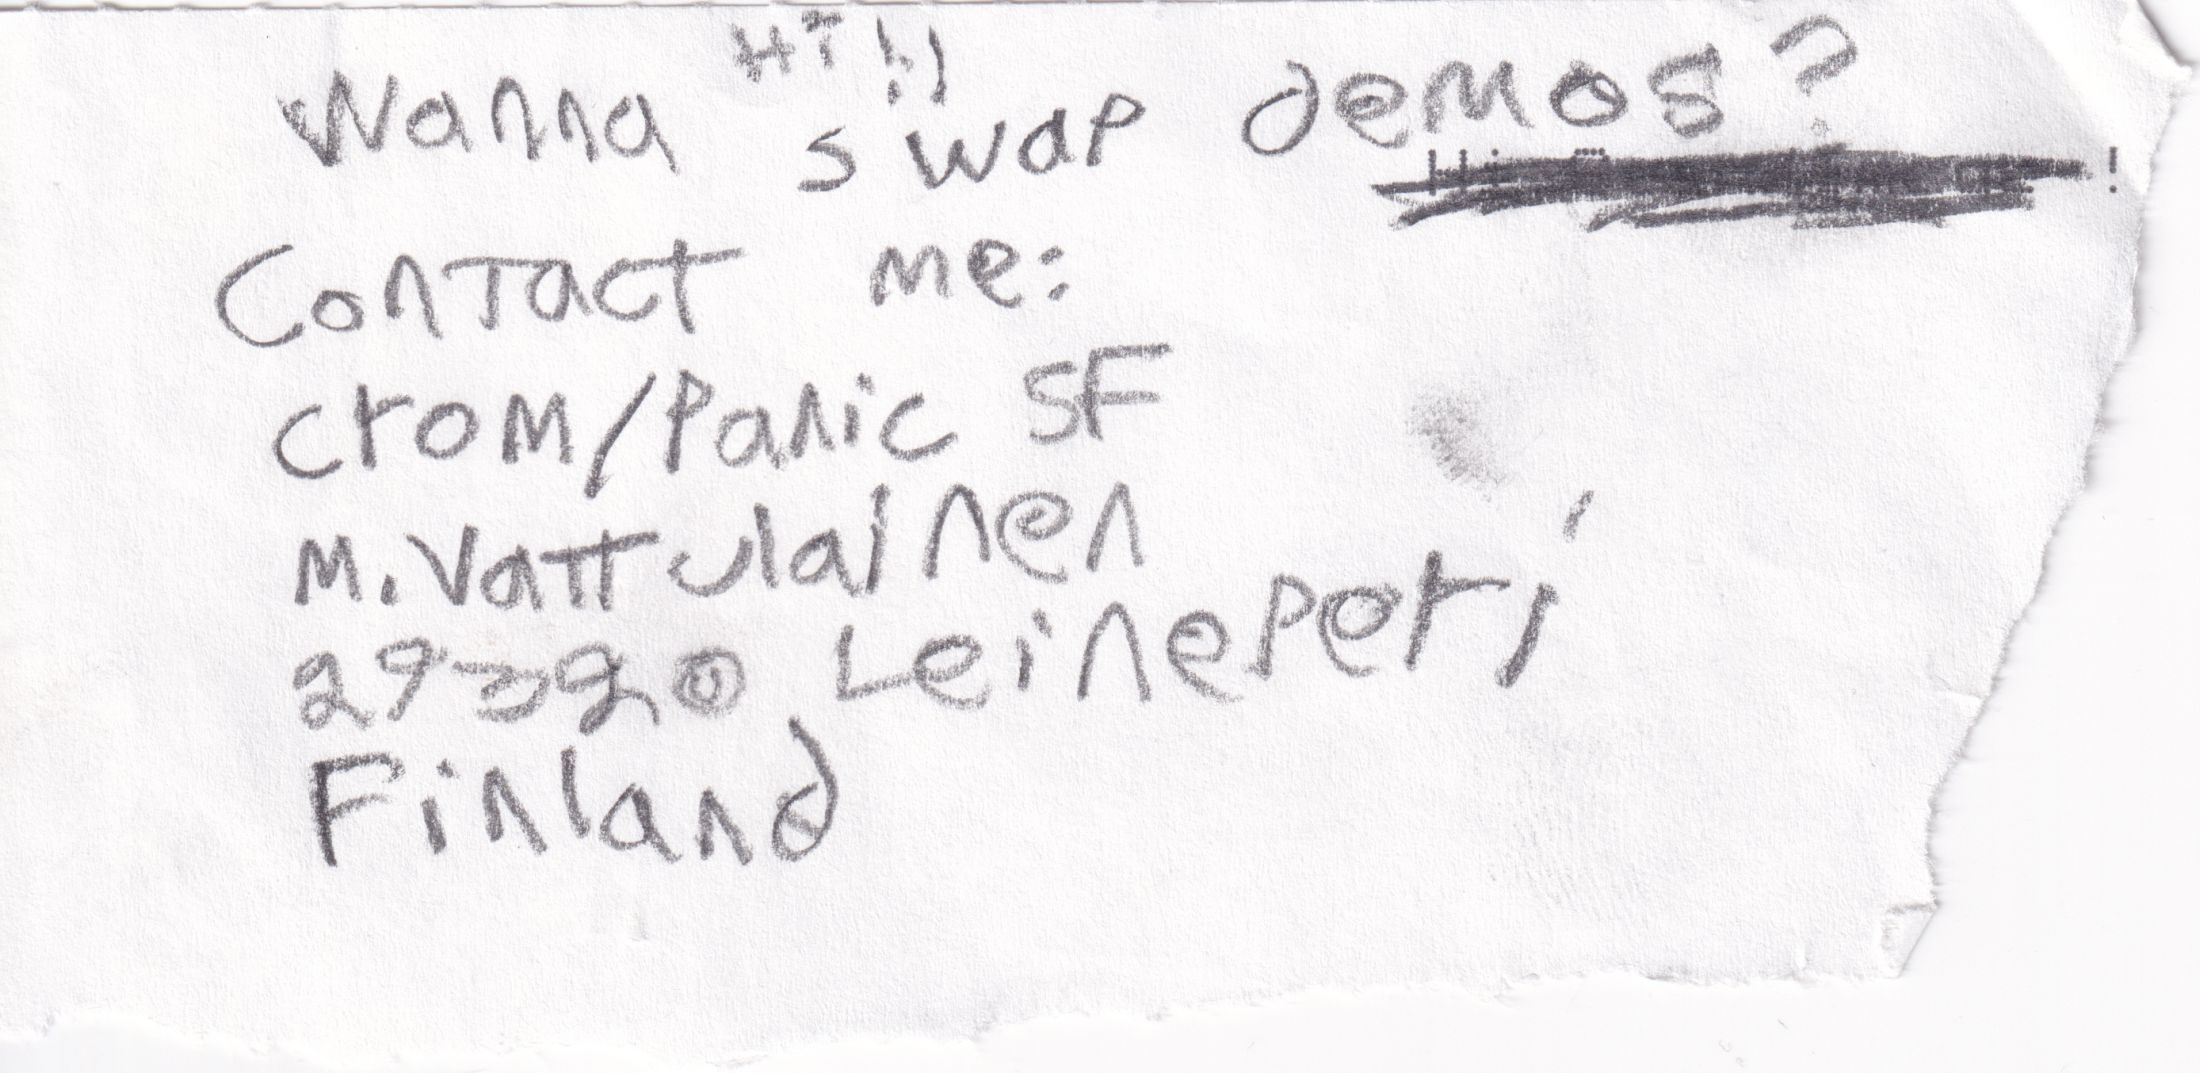 HI!!
Wanna swap demos?
Contact me:
Crom/Panic SF
M. Vattulainen
29320 Leineperi
Finland